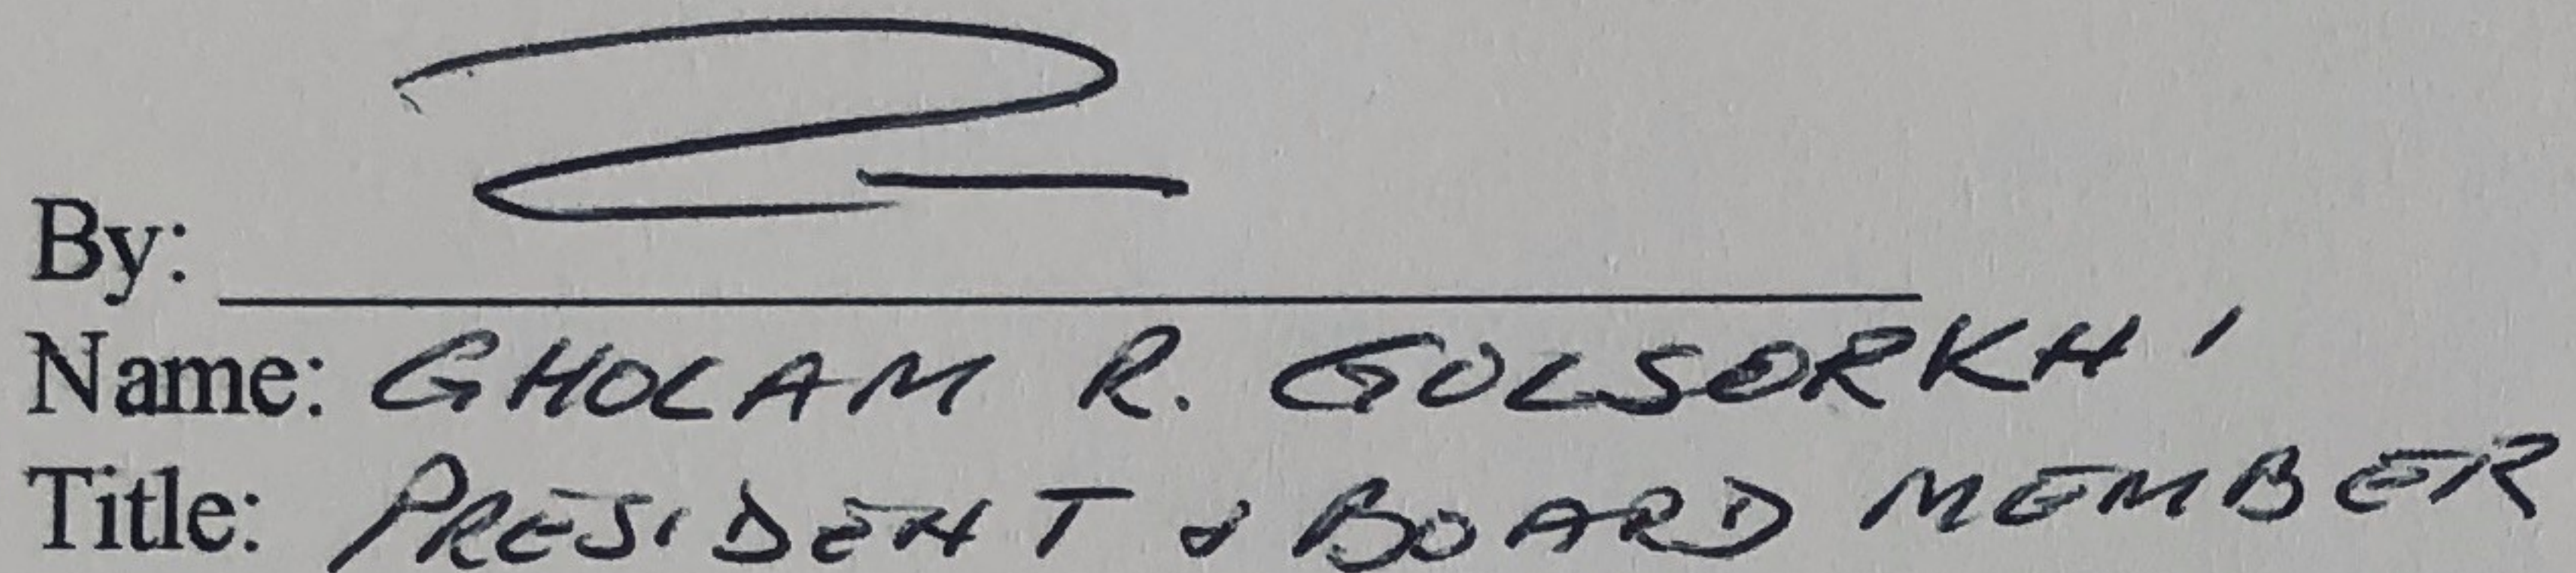 By:
Name: GHOLAM R. GOLSORKHI
Title: PRESIDENT & BOARD MEMBER